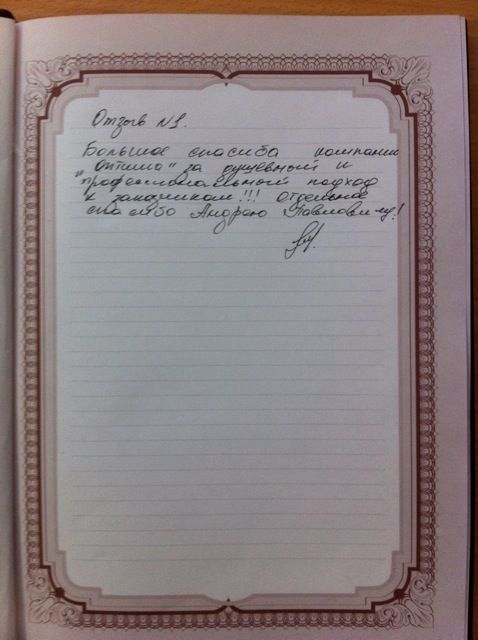 Отзыв №1.
Большое спасиба компании
"Оптима" за душевный и
профессиональный подход
к заказчикам!!! Отдельное
спасибо Андрею Павловичу!